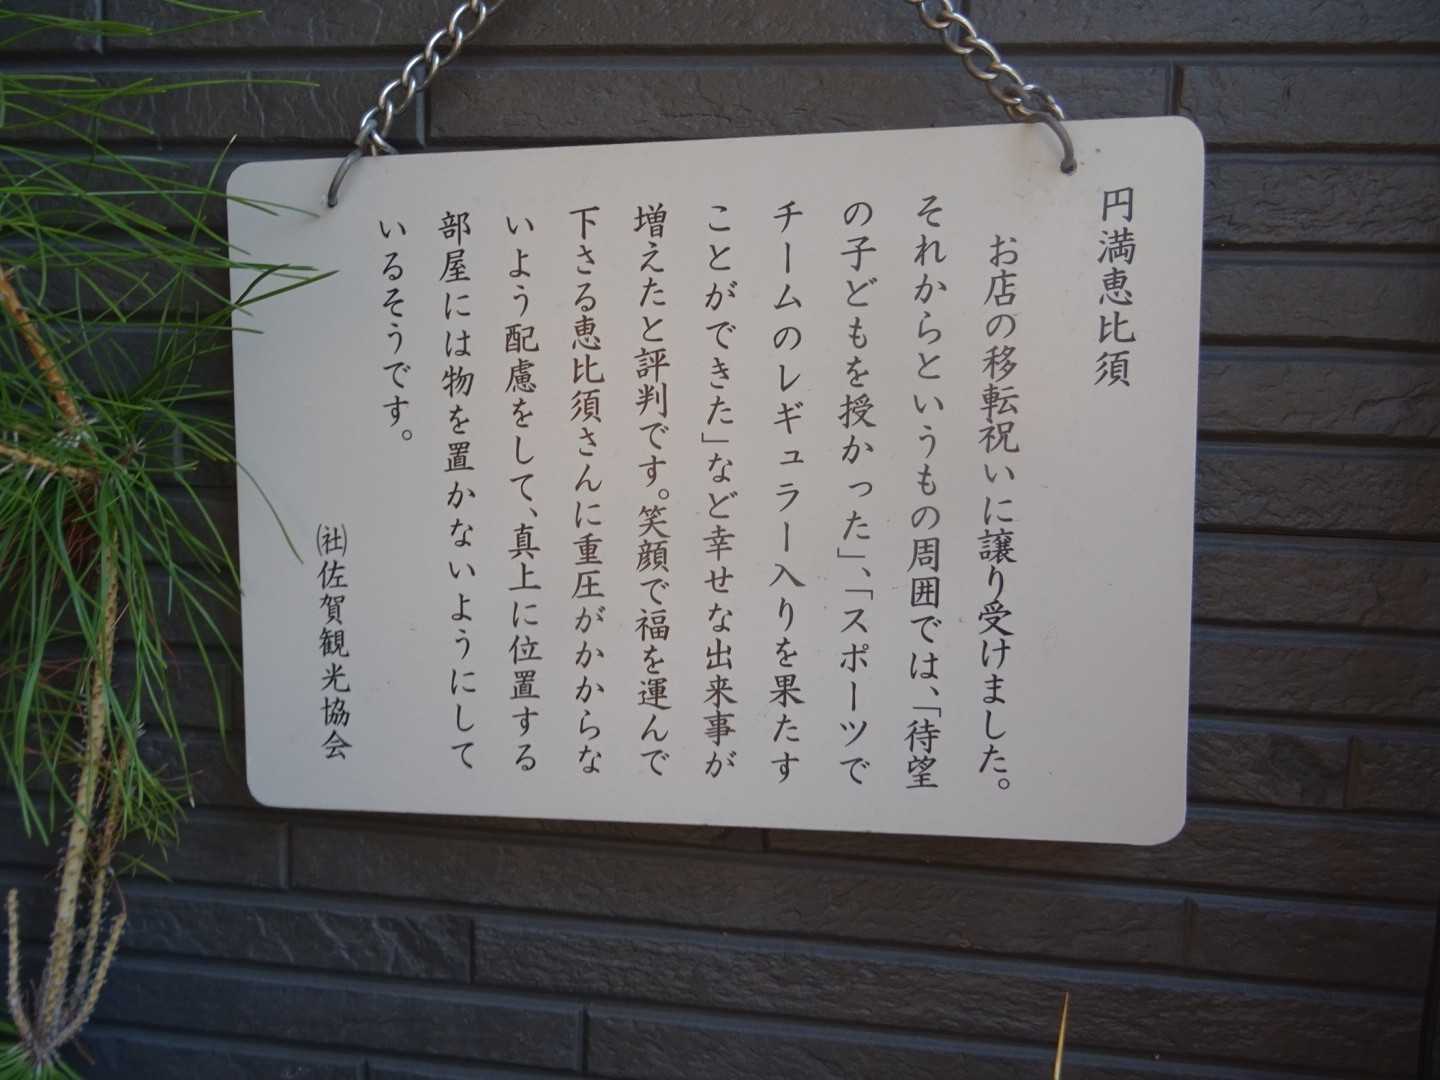 円満恵比須
お店の移転祝いに譲り受けました。
それからというもの周囲では、「待望
の子どもを授かった」、「スポーツで
チームのレギュラー入りを果たす
ことができた」など幸せな出来事が
増えたと評判です。笑顔で福を運んで
下さる恵比須さんに重圧がかからな
いよう配慮をして、真上に位置する
部屋には物を置かないようにして
いるそうです。
㈳佐賀観光協会